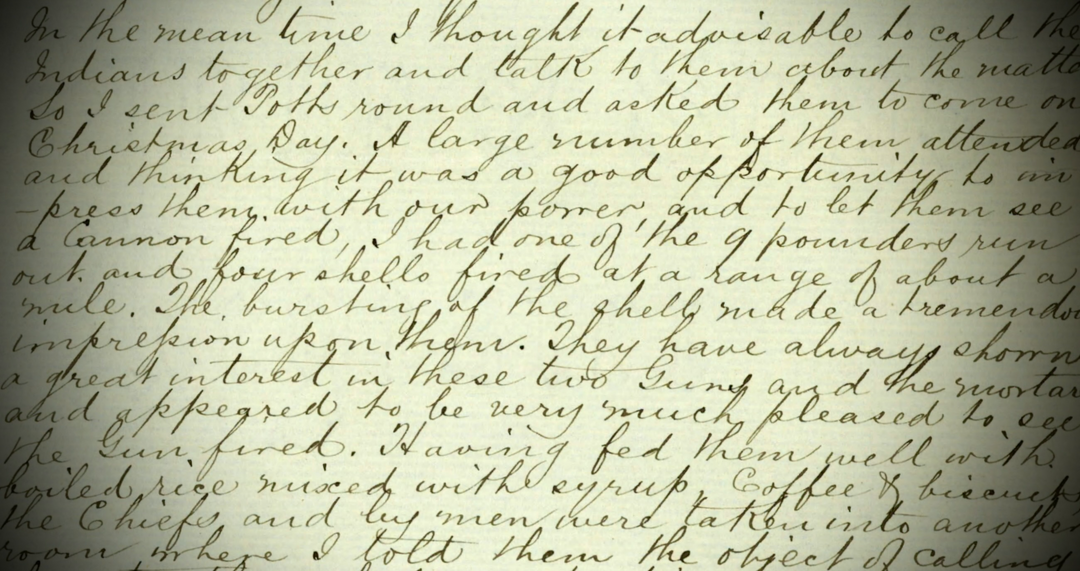 In the mean time I thought it advisable to call the
Indians together and talk to them about the matte
So I sent Potts round and asked them to come on
Christmas Day. A large number of them attended
and thinking it was a good opportunity to im
-press them with our power and to let them see
a Cannon fired, I had one of the 9 pounders run
out and four shells fired at a range of about a
mile. The bursting of the shells made a tremendou
impression upon them. They have always shown
a great interest in these two Guns and the mortar
and appeared to be very much pleased to see
the Gun fired. Having fed them well with
boiled rice mixed with syrup, Coffee & biscuit
the Chiefs and big men were taken into another
room where I told them the object of calling